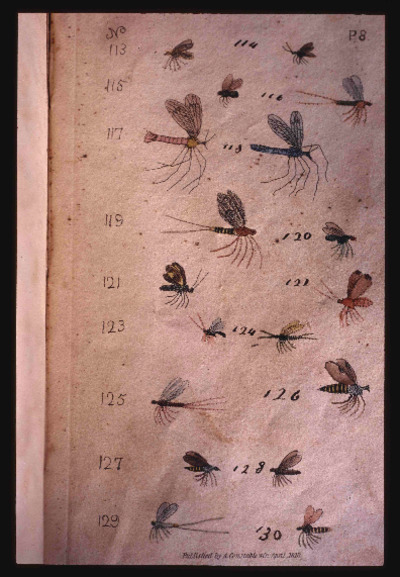 No P8
113 114
115 116
117 118
119 120
121 122
123 124
125 126
127 128
129 130
Published by A Constable